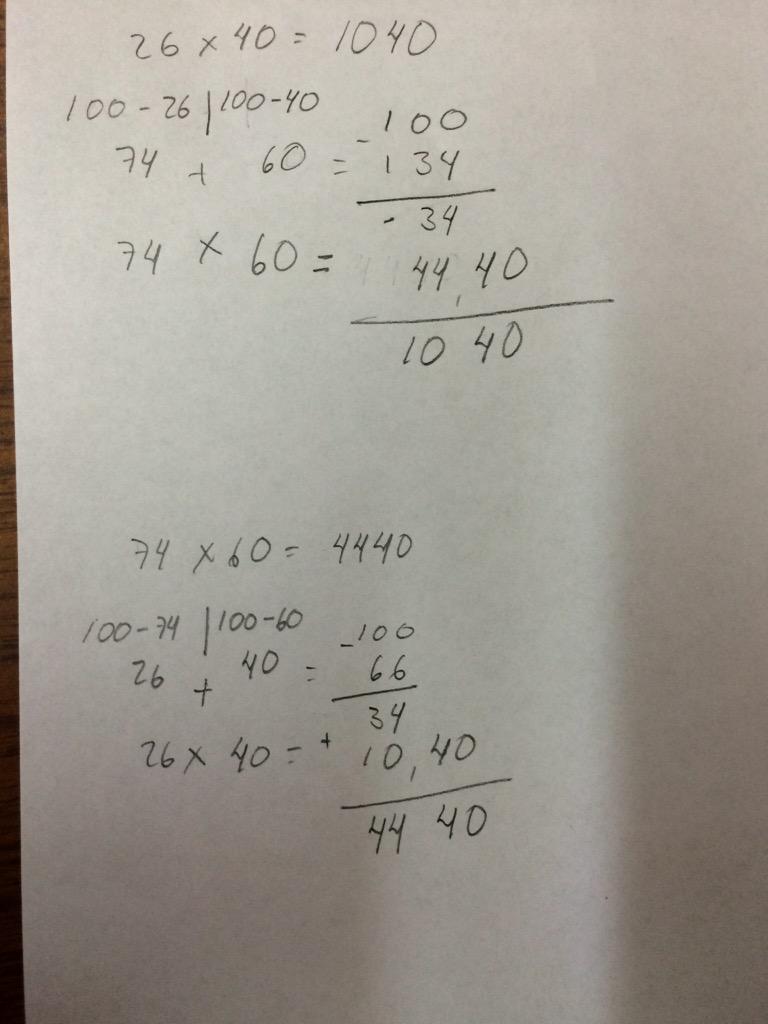 26 × 40 = 1040
100 - 26 | 100 - 40
- 100
74 + 60 = 134
- 34
74 × 60 = 44,40
10 40
74 × 60 = 4440
100 - 74 | 100 - 60
- 100
26 + 40 = 66
34
26 × 40 = + 10,40
44 40